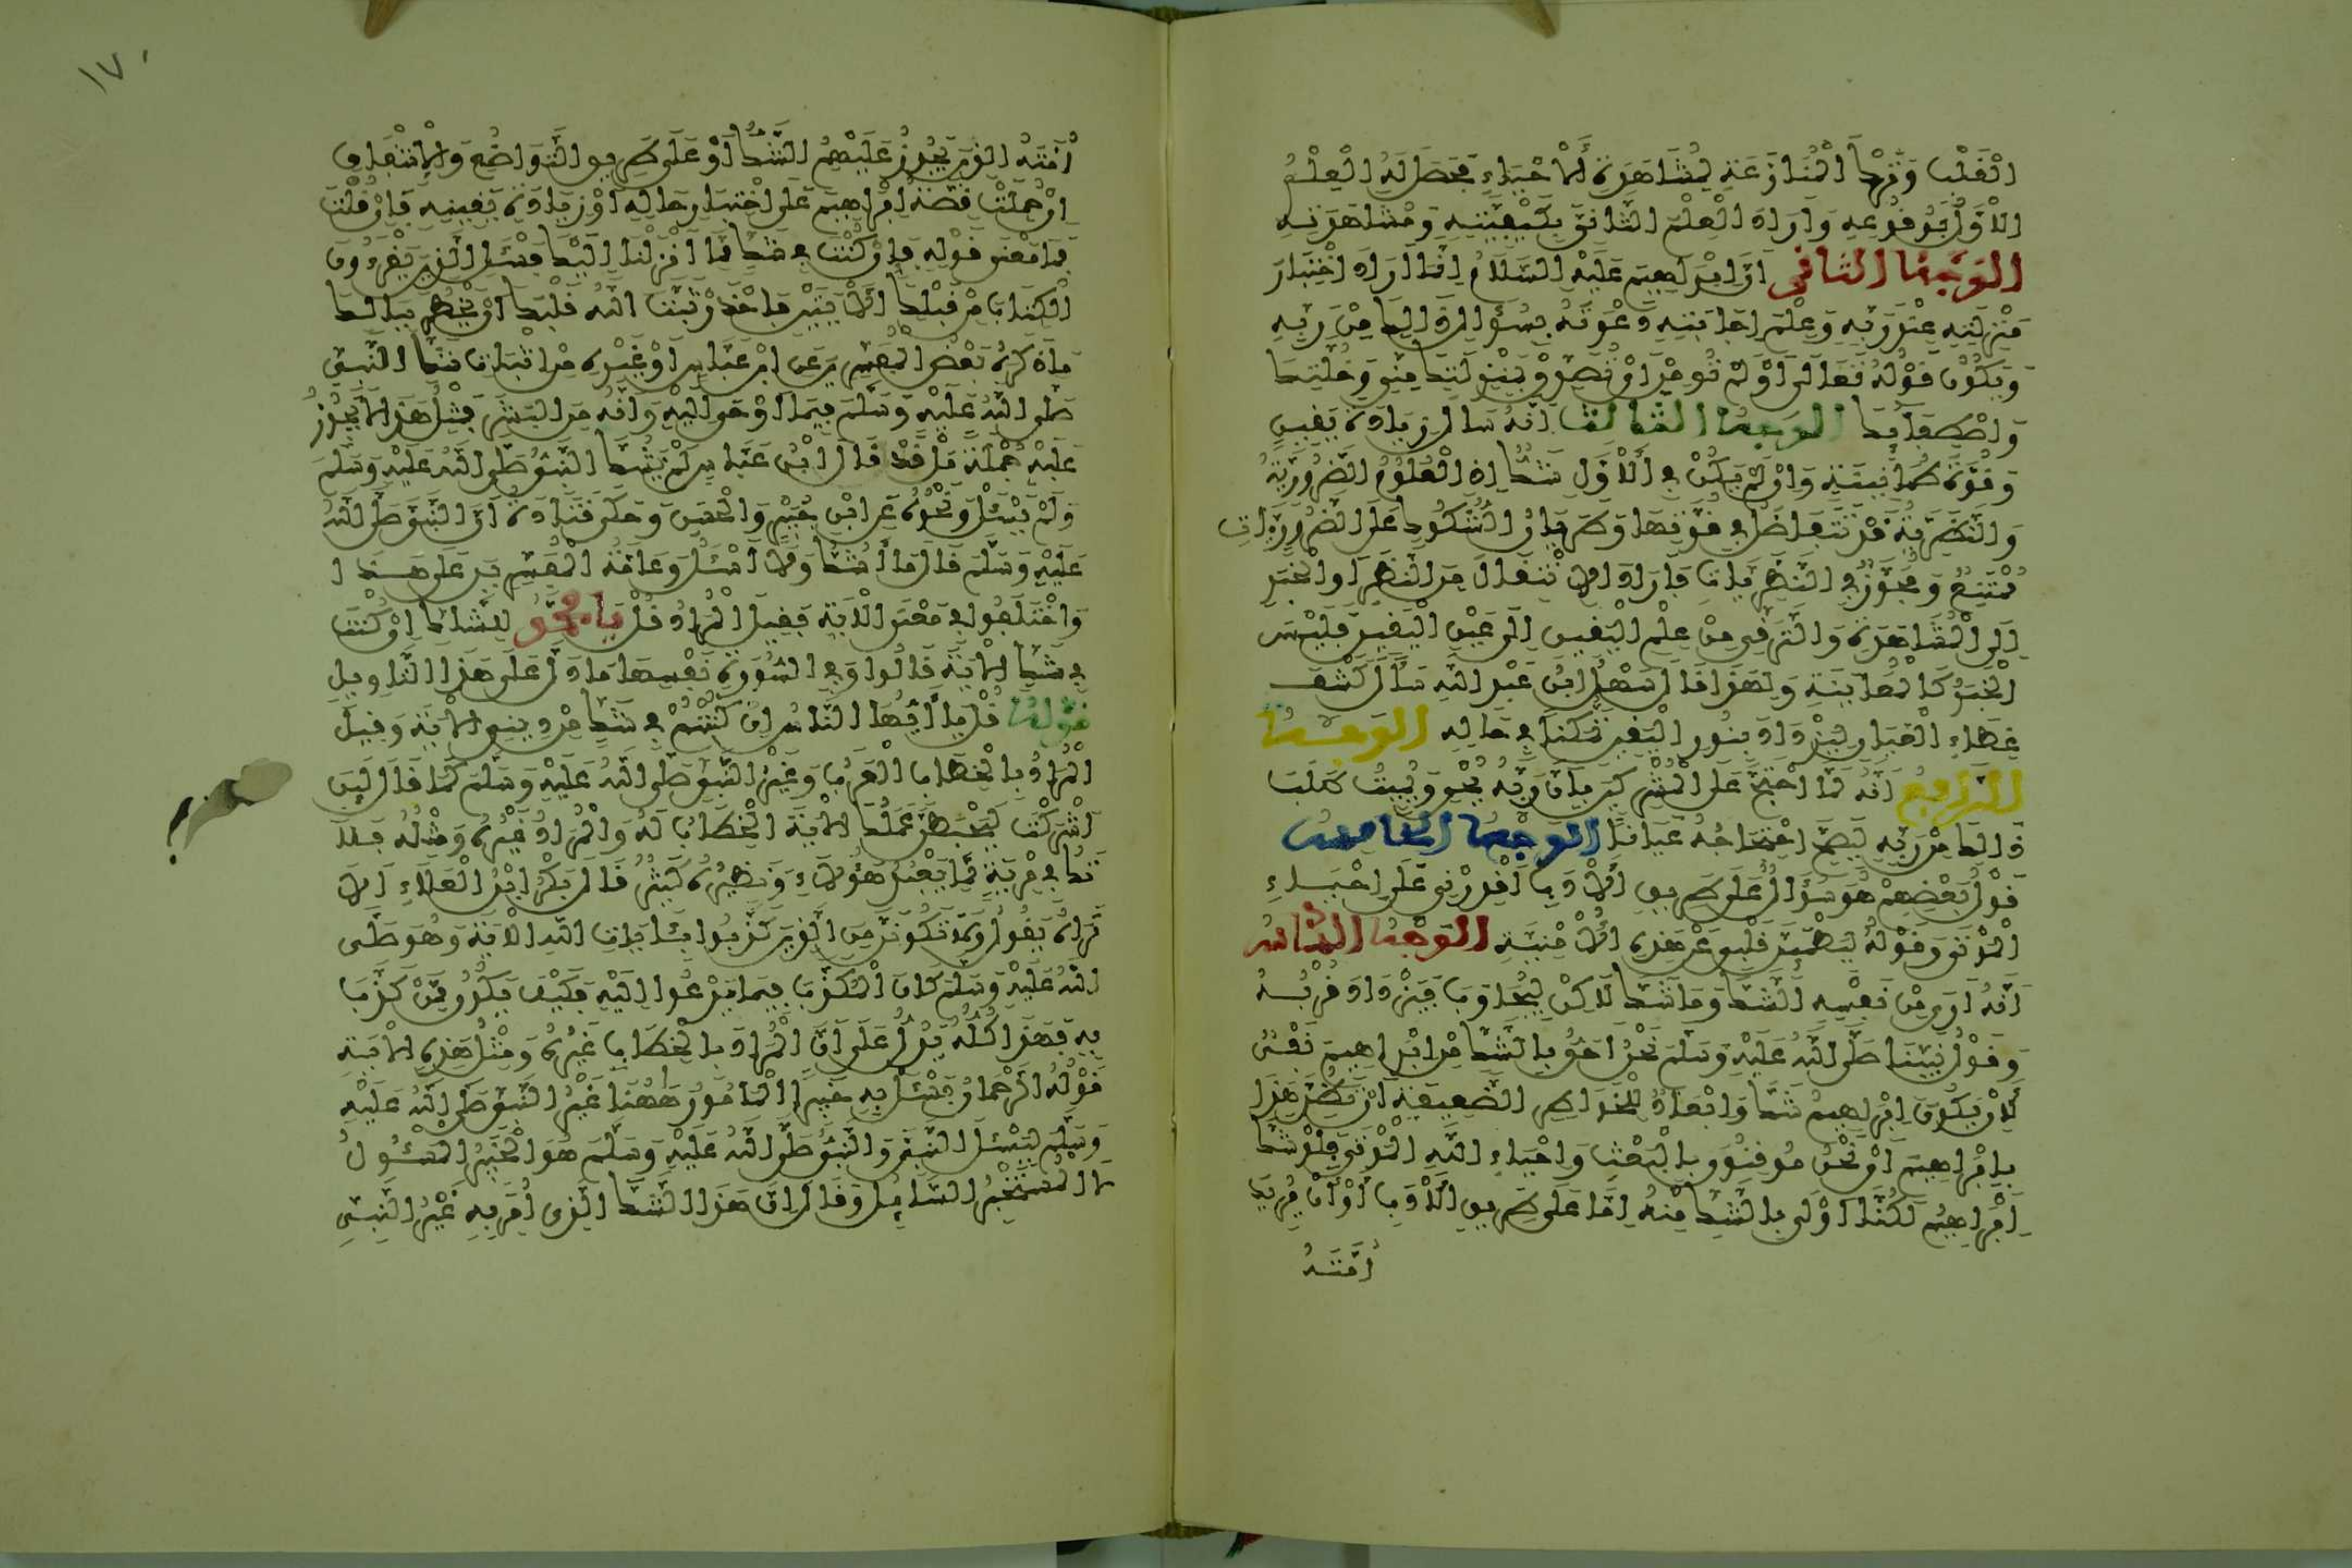 القلب وترك المنازعة لمشاهدة الاحياء فحصل له العلم
الاول بوقوعه واراد العلم الثاني بكيفيته ومشاهدته
الوجه الثاني ان ابراهيم عليه السلام انما اراد اختبار
منزلته عند ربه وعلم اجابته دعوته بسؤال ذلك من ربه
ويكون قوله تعالى اولم تومن اي تصدق بمنزلتك مني وخلتك
واصطفائك الوجه الثالث انه سال زيادة يقين
وقوة طمانينة وان لم يكن في الاول شك اذ العلوم الضرورية
والنظرية قد تتفاضل في قوتها وطريان الشكوك على الضروريات
ممتنع ومجوز في النظريات فاراد الانتقال من النظر او الخبر
الى المشاهدة والترقي من علم اليقين الى عين اليقين فليس
الخبر كالمعاينة ولهذا قال سهل ابن عبد الله سال كشف
غطاء العيان ليزداد بنور اليقين تمكنا في حاله الوجه
الرابع انه لما احتج على المشركين بان ربه يحي ويميت طلب
ذالك من ربه ليصح احتجاجه عيانا الوجه الخامس
قول بعضهم هو سؤال على طريق الادب اقدرني على احياء
الموتى وقوله ليطمئن قلبي عن هذه الامنية الوجه السادس
انه ارى من نفسه الشك وما شك لاكن ليجاوب فيزداد قربه
وقول نبينا صلى الله عليه وسلم نحن احق بالشك من ابراهيم نفي
لان يكون ابراهيم شك وابعاد للخواطر الضعيفة ان يظن هذا
بابراهيم اي نحن موقنون بالبعث واحياء الله الموتى فلو شك
ابراهيم لكنا اولى بالشك منه اما على طريق الادب او ان يريد
امته
١٧٠
امته الذين يجوز عليهم الشك او على طريق التواضع والاشفاق
ان حملت قصة ابراهيم على اختبار حاله او زيادة يقينه فان قلت
فما معنى قوله فان كنت في شك مما انزلنا اليك فسئل الذين يقرءون
الكتاب من قبلك الايتين فاحذر ثبت الله قلبك ان يخطر ببالك
ما ذكره بعض المفسرين عن ابن عباس او غيره من اثبات شك النبي
صلى الله عليه وسلم فيما اوحى اليه وانه من البشر فمثل هذا لا يجوز
عليه جملة بل قد قال ابن عباس لم يشك النبي صلى الله عليه وسلم
ولم يسئل ونحوه عن ابن جبير والحسن وحكى قتادة ان النبي صلى الله
عليه وسلم قال ما اشك ولا اسئل وعامة المفسرين على هذا
واختلفوا في معنى الاية فقيل المراد قل يا محمد للشاك ان كنت
في شك الاية قالوا وفي السورة نفسها ما دل على هذا التاويل
قوله قل يا ايها الناس ان كنتم في شك من ديني الاية وقيل
المراد بالخطاب العرب وغير النبي صلى الله عليه وسلم كما قال لئن
اشركت ليحبطن عملك الاية الخطاب له والمراد غيره ومثله فلا
تك في مرية مما يعبد هؤلاء ونظيره كثير قال بكر ابن العلاء الا
تراه يقول ولا تكونن من الذين كذبوا بئايات الله الاية وهو صلى
الله عليه وسلم كان المكذب فيما يدعوا اليه فكيف يكون ممن كذب
به فهذا كله يدل على ان المراد بالخطاب غيره ومثل هذه الاية
قوله الرحمان فسئل به خبيرا المامور هاهنا غير النبي صلى الله عليه
وسلم ليسئل النبي والنبي صلى الله عليه وسلم هو الخبير المسئول
لا المستخبر السائل وقال ان هذا الشك الذي امر به غير النبي